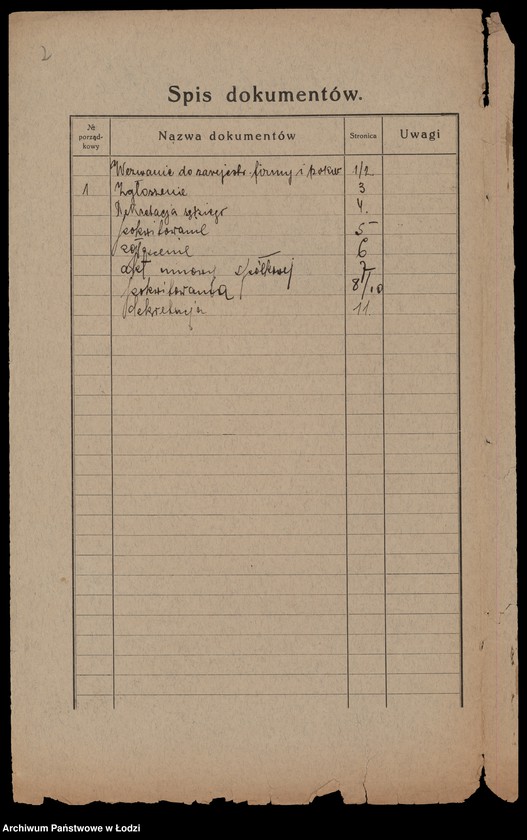 2
Spis dokumentów.
№ porząd-kowy Nazwa dokumentów Stronica Uwagi
Wezwanie do zarejestr. firmy i pokw 1/2
1 Zgłoszenie 3
Dekretacja 4.
pokwitowanie 5
zgłoszenie 6
akt umowy spółkowej 7
pokwitowania 8/10
dekretacja 11
Archiwum Państwowe w Łodzi